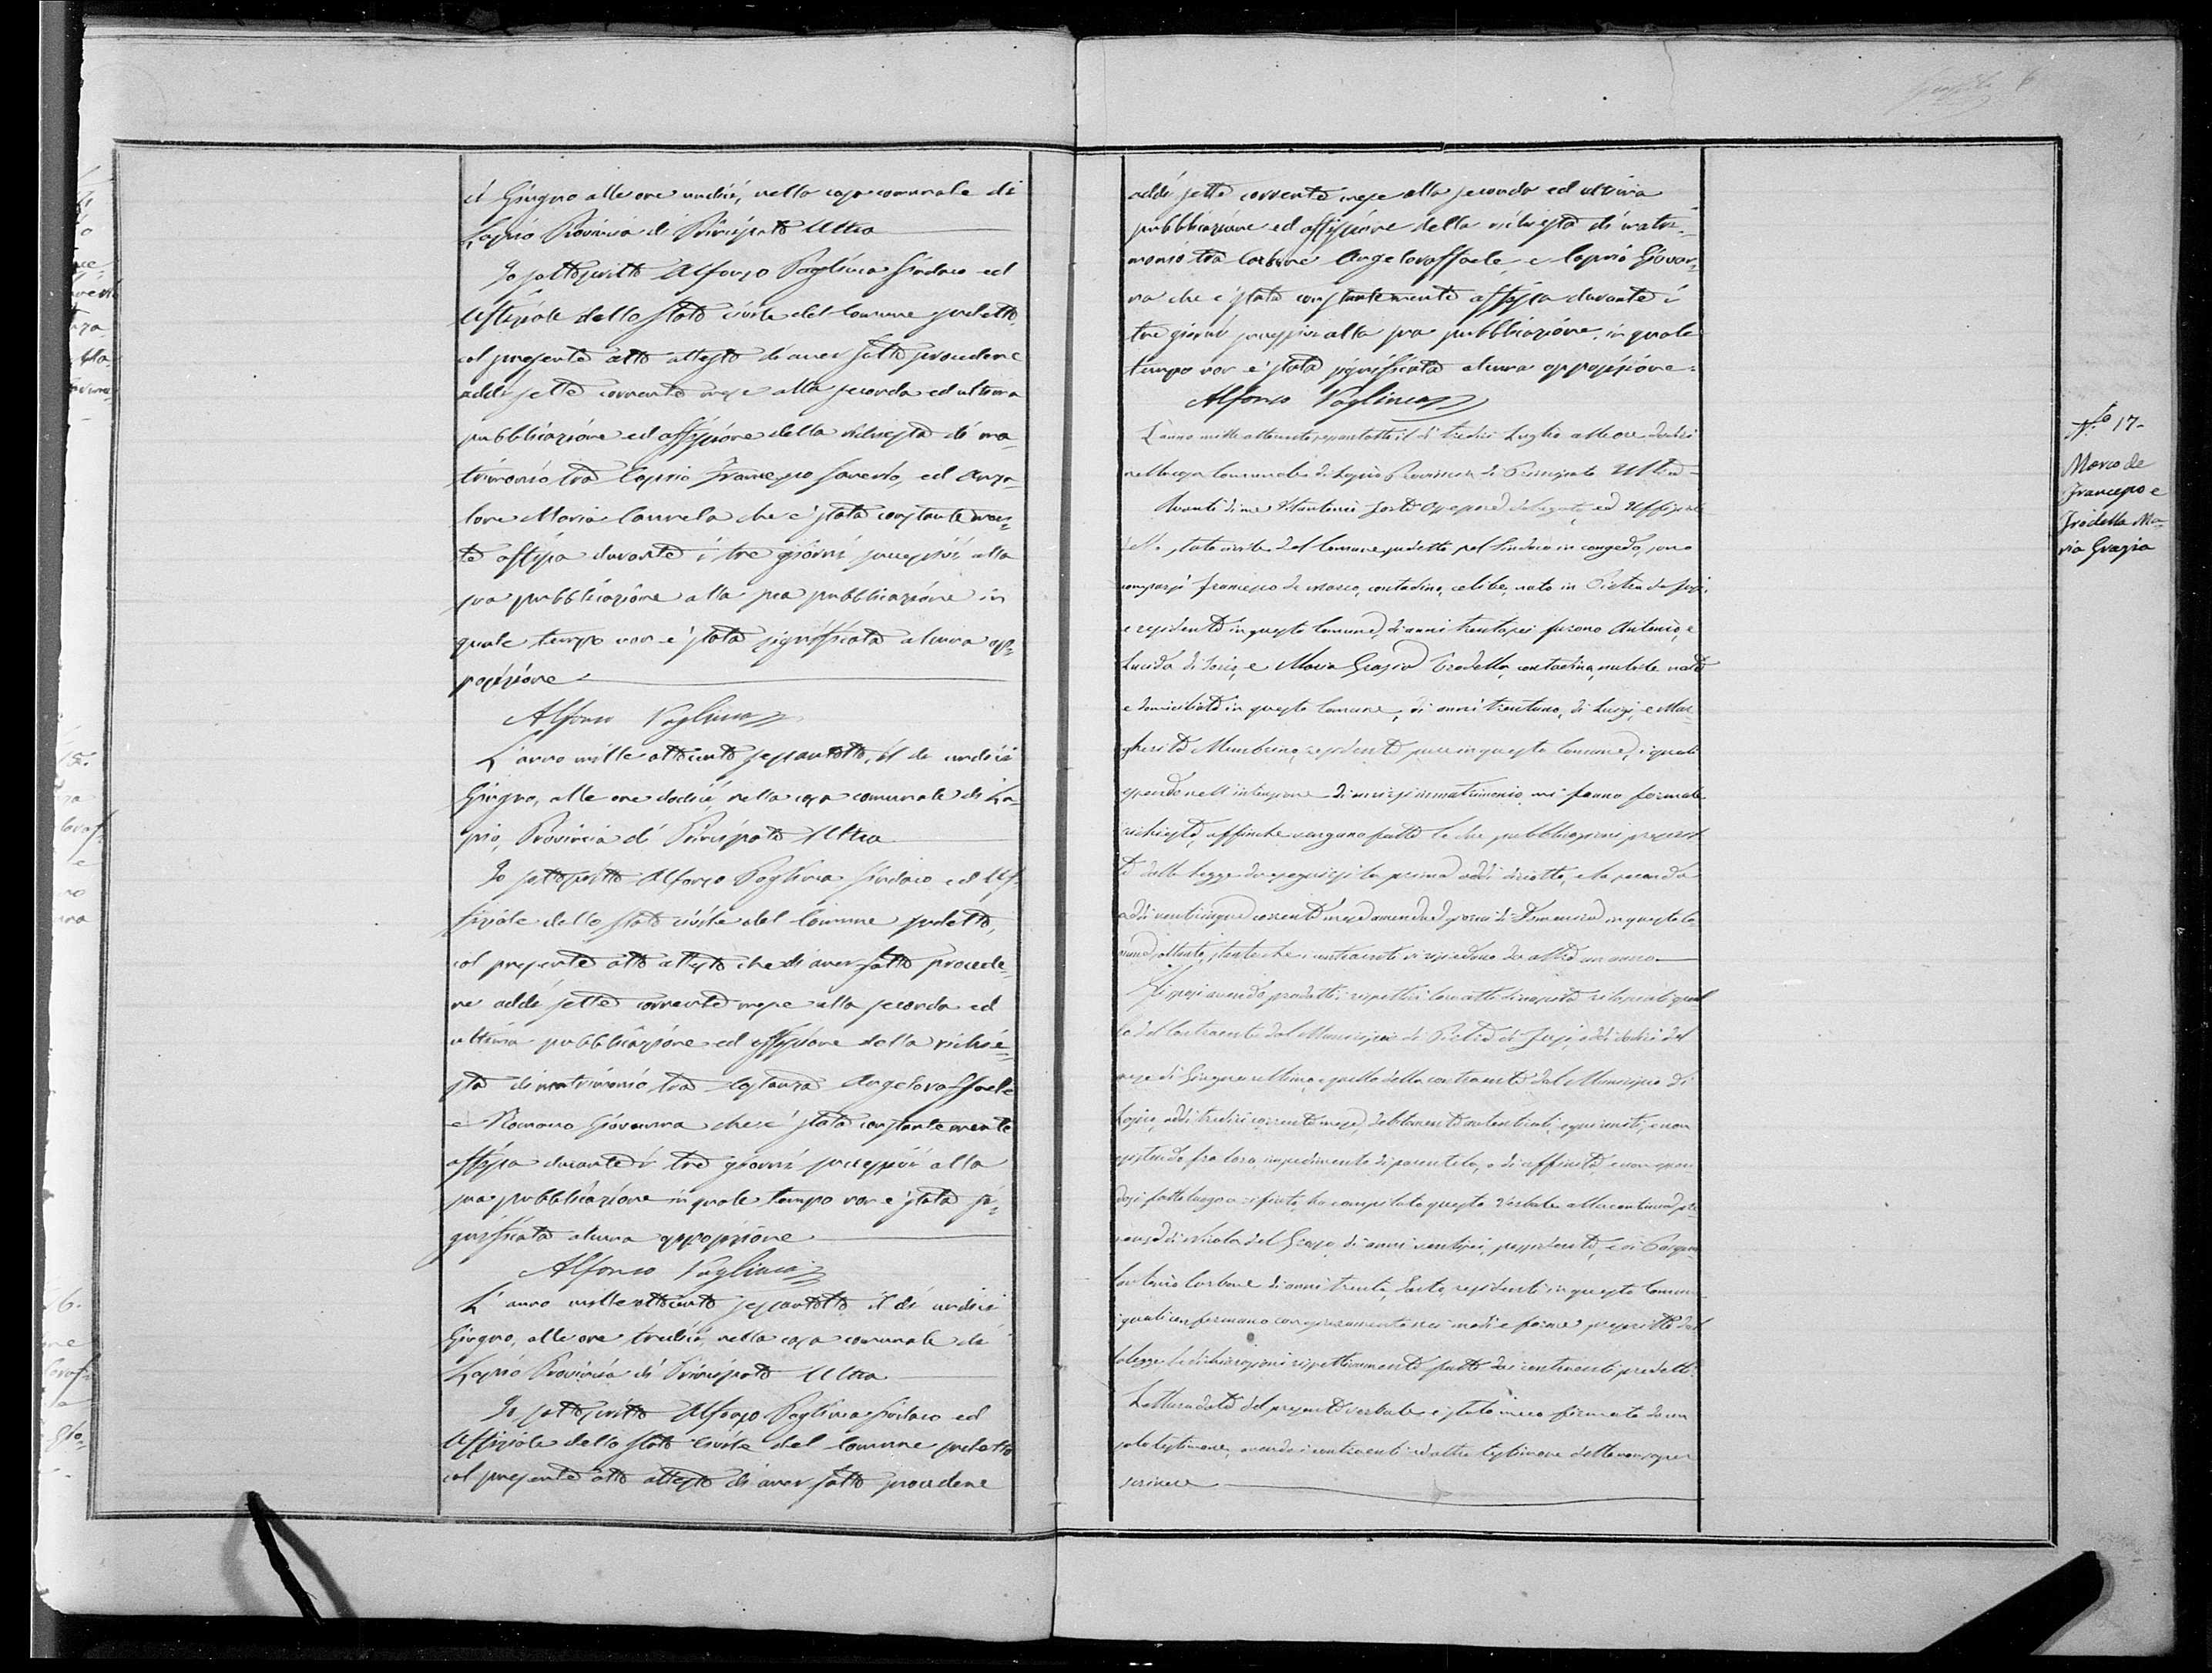 di Giugno alle ore undici, nella casa comunale di
Lapio Provincia di Principato Ultra
Io sottoscritto Alfonso Paglinca Sindaco ed
Uffiziale dello Stato civile del Comune sudetto,
col presente atto attesto di aver fatto procedere
addì sette corrente mese alla seconda ed ultima
pubblicazione ed affissione della richiesta di ma-
trimonio tra Caprio Francesco Saverio, ed
Maria Carmela che è stata constantemen-
te affissa durante i tre giorni successivi alla
sua pubblicazione alla sua pubblicazione in
quale tempo non è stata significata alcuna op-
posizione
Alfonso Paglinca
L'anno mille ottocento sessantotto, il dì undici
Giugno, alle ore dodici, nella casa comunale di La-
pio, Provincia di Principato Ultra
Io sottoscritto Alfonso Paglinca Sindaco ed Uf-
fiziale dello Stato civile del Comune sudetto,
col presente atto attesto che di aver fatto procede-
re addì sette corrente mese alla seconda ed
ultima pubblicazione ed affissione della richie-
sta di matrimonio tra Costanza Angeloraffaele
e Romano Giovanna che è stata constantemente
affissa durante i tre giorni successivi alla
sua pubblicazione in quale tempo non è stata si-
gnificata alcuna opposizione
Alfonso Paglinca
L'anno mille ottocento sessantotto il dì undici
Giugno, alle ore tredici, nella casa comunale di
Lapio Provincia di Principato Ultra
Io sottoscritto Alfonso Paglinca Sindaco ed
Uffiziale dello Stato Civile del Comune sudetto
col presente atto attesto di aver fatto procedere
6
addì sette corrente mese alla seconda ed ultima
pubblicazione ed affissione della richiesta di matri-
monio tra Carbone Angeloraffaele e Caprio Giovan-
na che è stata constantemente affissa durante i
tre giorni successivi alla sua pubblicazione, in quale
tempo non è stata significata alcuna opposizione.
Alfonso Paglinca
L'anno mille ottocento sessantotto il dì tredici Luglio alle ore dodici
nella casa Comunale di Lapio Provincia di Principato Ultra
Avanti di me Assessore delegato ed Uffiziale
dello stato civile del Comune sudetto pel Sindaco in congedo, sono
comparsi Francesco de Marco, contadino, celibe, nato in Pietra de Fusi,
e residente in questo Comune, di anni trentasei furono Antonio, e
Lucida di e Maria Grazia Trodella, contadina, nubile nata
e domiciliata in questo Comune, di anni trentuno, di Luigi, e Mar-
gherita residente pure in questo Comune, i quali
essendo nell'intenzione di unirsi in matrimonio mi fanno formale
richiesta, affinché vengano fatte le due pubblicazioni prescrit-
te dalla legge da eseguirsi la prima addì diciotto, e la seconda
addì venticinque corrente mese amendue giorni di Domenica in questo Co-
mune soltanto, stante che i contraenti vi risiedono da oltre un anno
Gli sposi avendo prodotti i rispettivi loro atti di nascita rilasciati quel-
lo del Contraente dal Municipio di Pietra di Fusi, addì dodici del
mese di Giugno ultimo, e quello della contraente dal Municipio di
Lapio, addì tredici corrente mese, debitamente autenticati, e non
esistendo fra loro impedimento di parentela, o di affinità, e non essen-
dosi fatto luogo a rifiuto, ho compilato questo verbale alla continua pre-
senza di Nicola del Grosso di anni ventisei, possidente, e di
Carbone di anni trenta, Sarto, residenti in questo Comune
i quali confermano con giuramento nei modi e forme prescritte dal-
la legge le dichiarazioni rispettivamente fatte dai contraenti predetti.
Lettura data del presente verbale è stato meco firmato da un
solo testimone, avendo i contraenti ed altro testimone detto non saper
scrivere
N.o 17-
Marco de
Francesco e
Trodella Ma-
ria Grazia